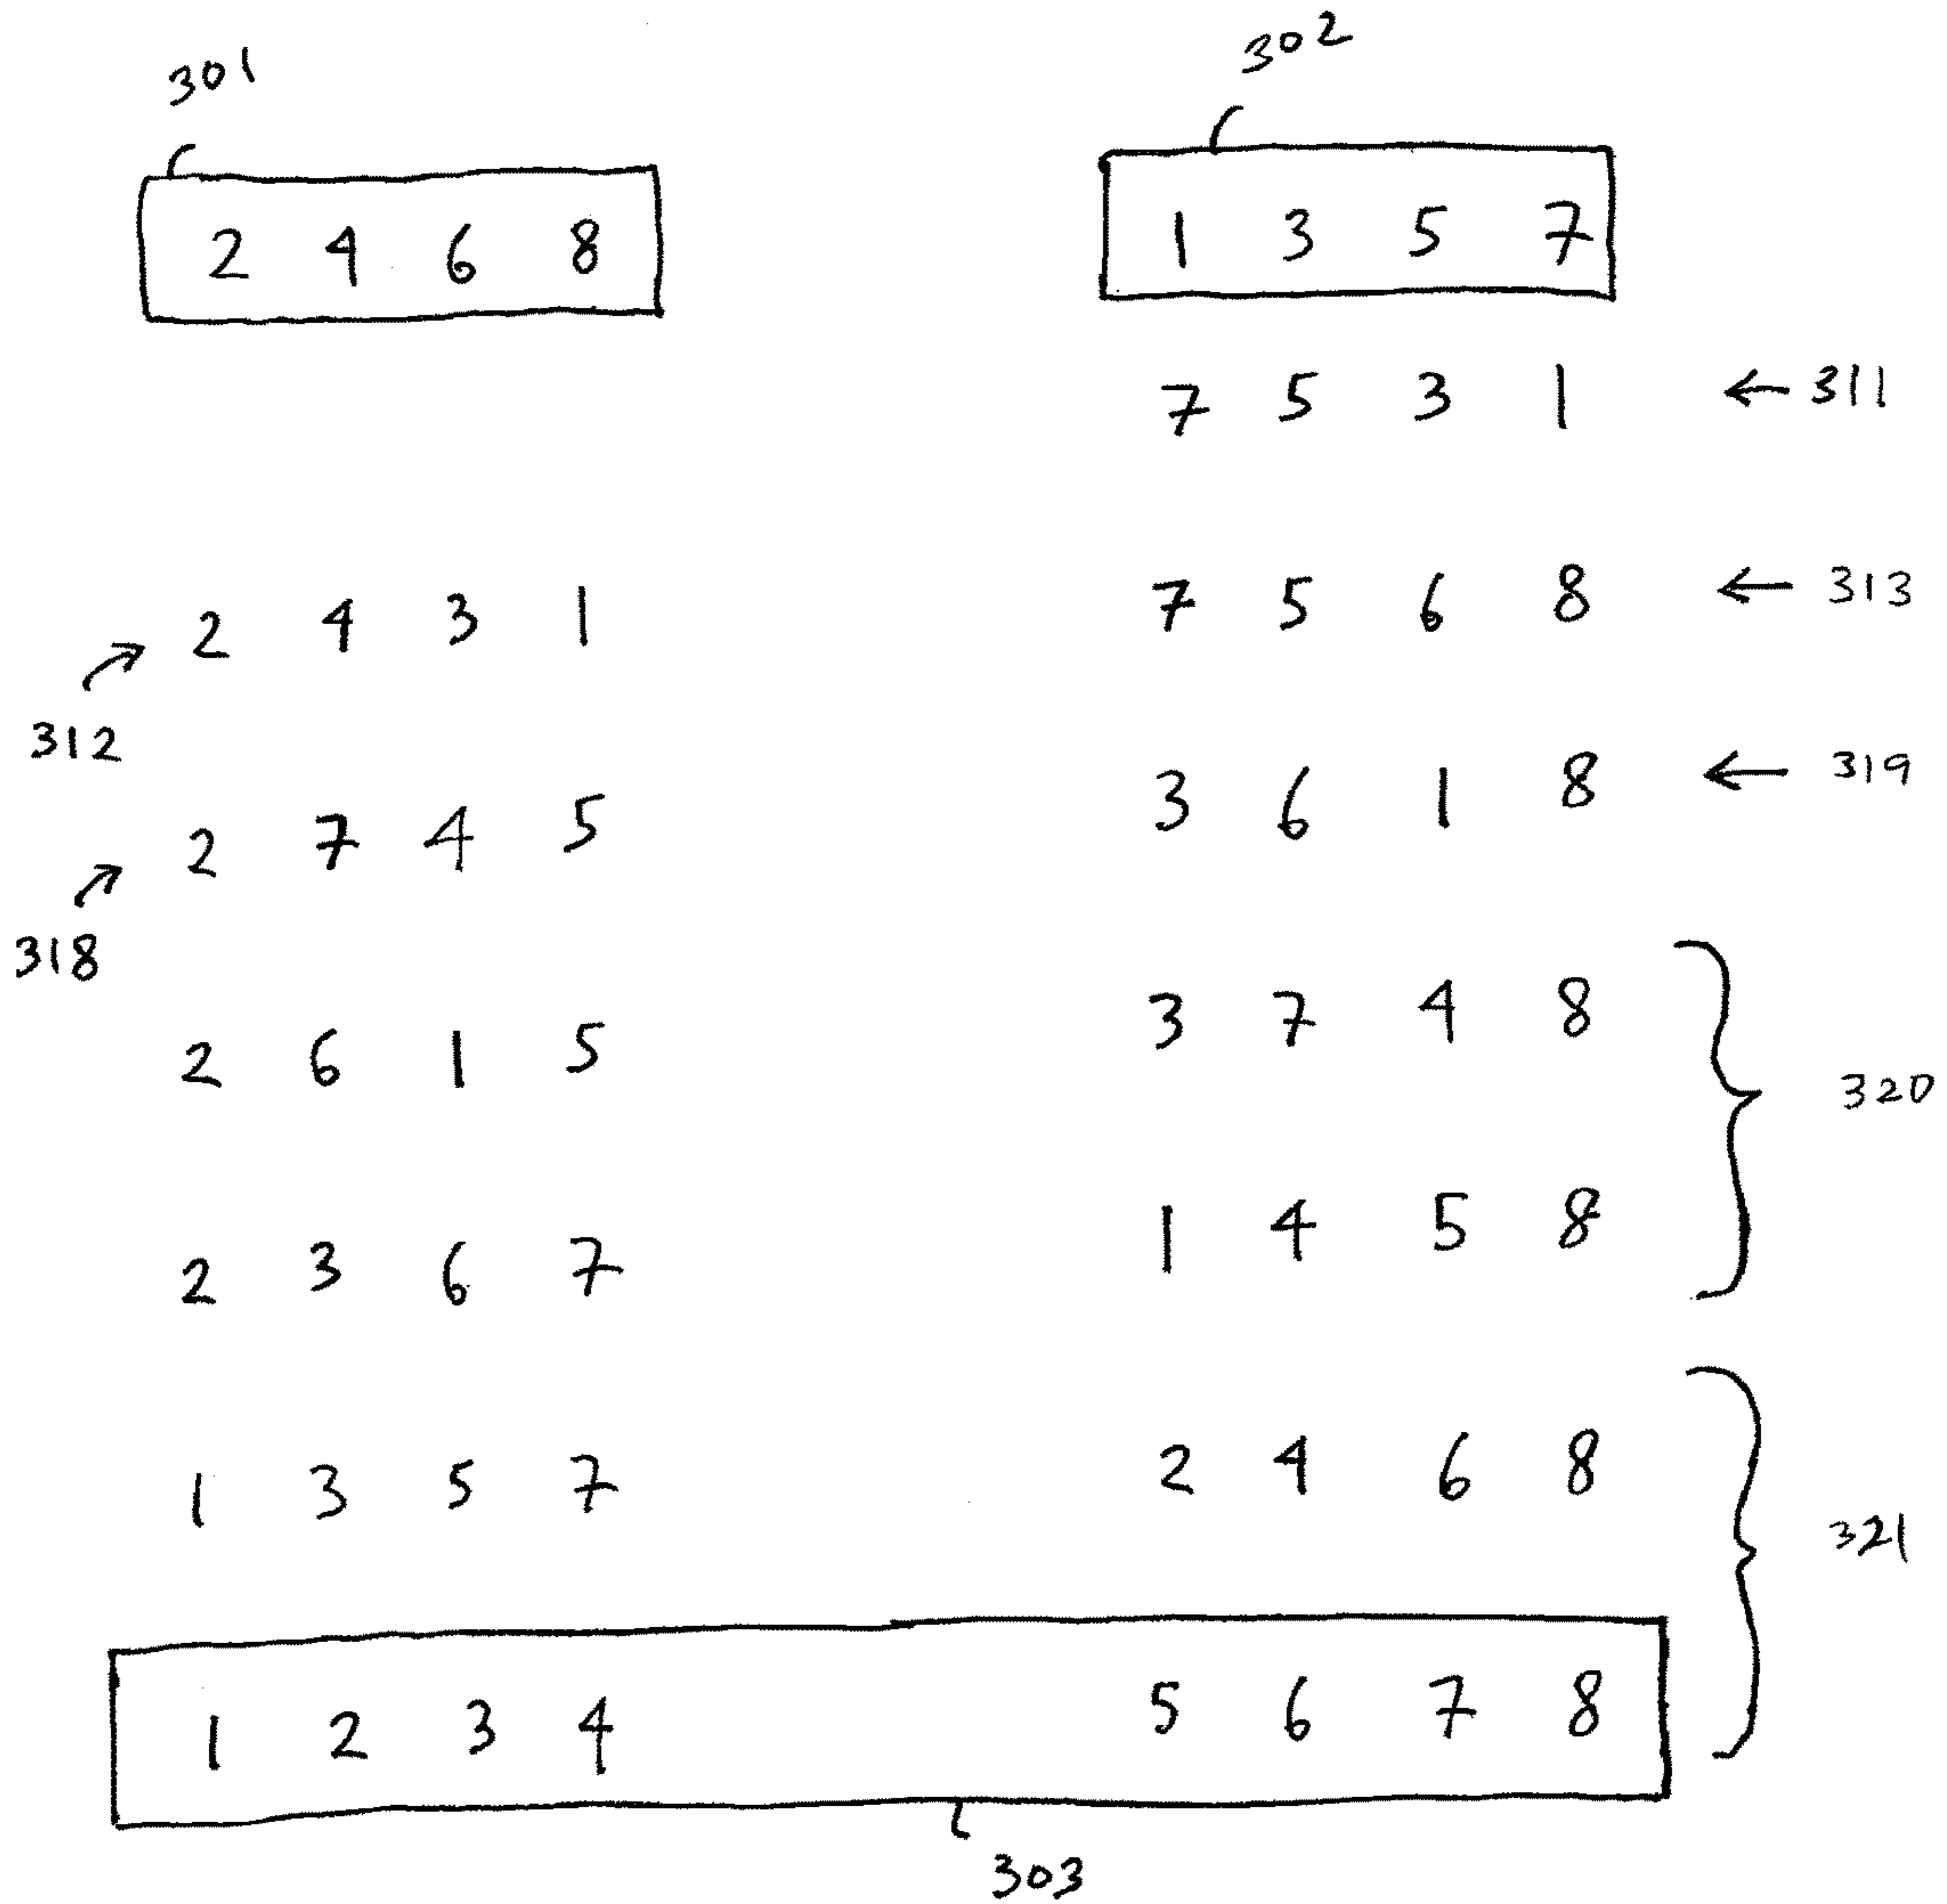 301 302
2 4 6 8 1 3 5 7
7 5 3 1 ← 311
2 4 3 1 7 5 6 8 ← 313
312
2 7 4 5 3 6 1 8 ← 319
318
2 6 1 5 3 7 4 8
320
2 3 6 7 1 4 5 8
1 3 5 7 2 4 6 8
321
1 2 3 4 5 6 7 8
303